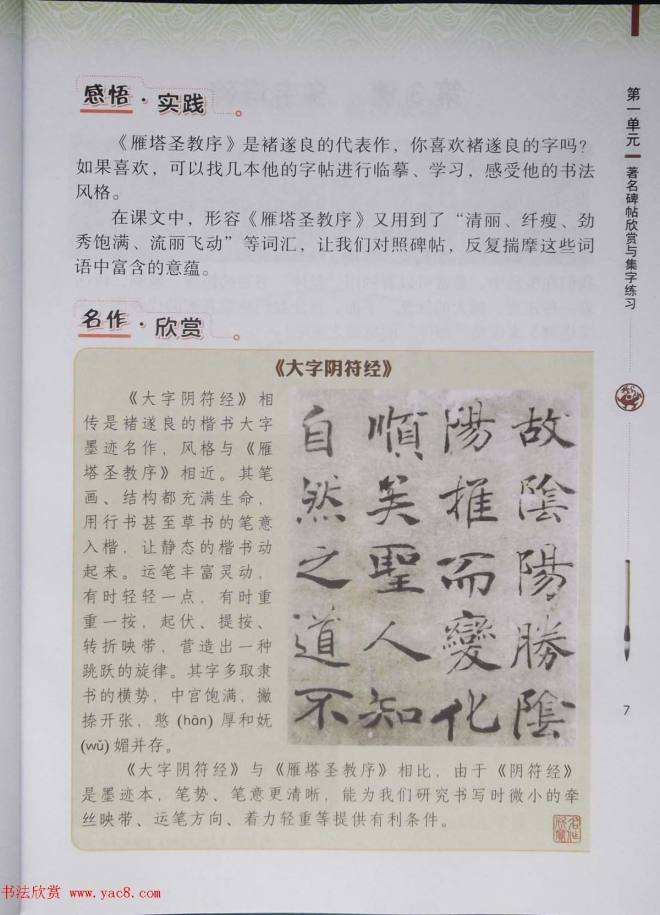 感悟·实践
《雁塔圣教序》是褚遂良的代表作，你喜欢褚遂良的字吗？
如果喜欢，可以找几本他的字帖进行临摹、学习，感受他的书法
风格。
在课文中，形容《雁塔圣教序》又用到了“清丽、纤瘦、劲
秀饱满、流丽飞动”等词汇，让我们对照碑帖，反复揣摩这些词
语中富含的意蕴。
名作·欣赏
《大字阴符经》
《大字阴符经》相
传是褚遂良的楷书大字
墨迹名作，风格与《雁
塔圣教序》相近。其笔
画、结构都充满生命，
用行书甚至草书的笔意
入楷，让静态的楷书动
起来。运笔丰富灵动，
有时轻轻一点，有时重
重一按，起伏、提按、
转折映带，营造出一种
跳跃的旋律。其字多取隶
书的横势，中宫饱满，撇
捺开张，憨 (hān) 厚和妩
(wǔ) 媚并存。
故陰陽勝陰
陽推而變化
順矣聖人知
自然之道不
《大字阴符经》与《雁塔圣教序》相比，由于《阴符经》
是墨迹本，笔势、笔意更清晰，能为我们研究书写时微小的牵
丝映带、运笔方向、着力轻重等提供有利条件。
名作欣赏
第一单元
著名碑帖欣赏与集字练习
7
书法欣赏 www.yac8.com